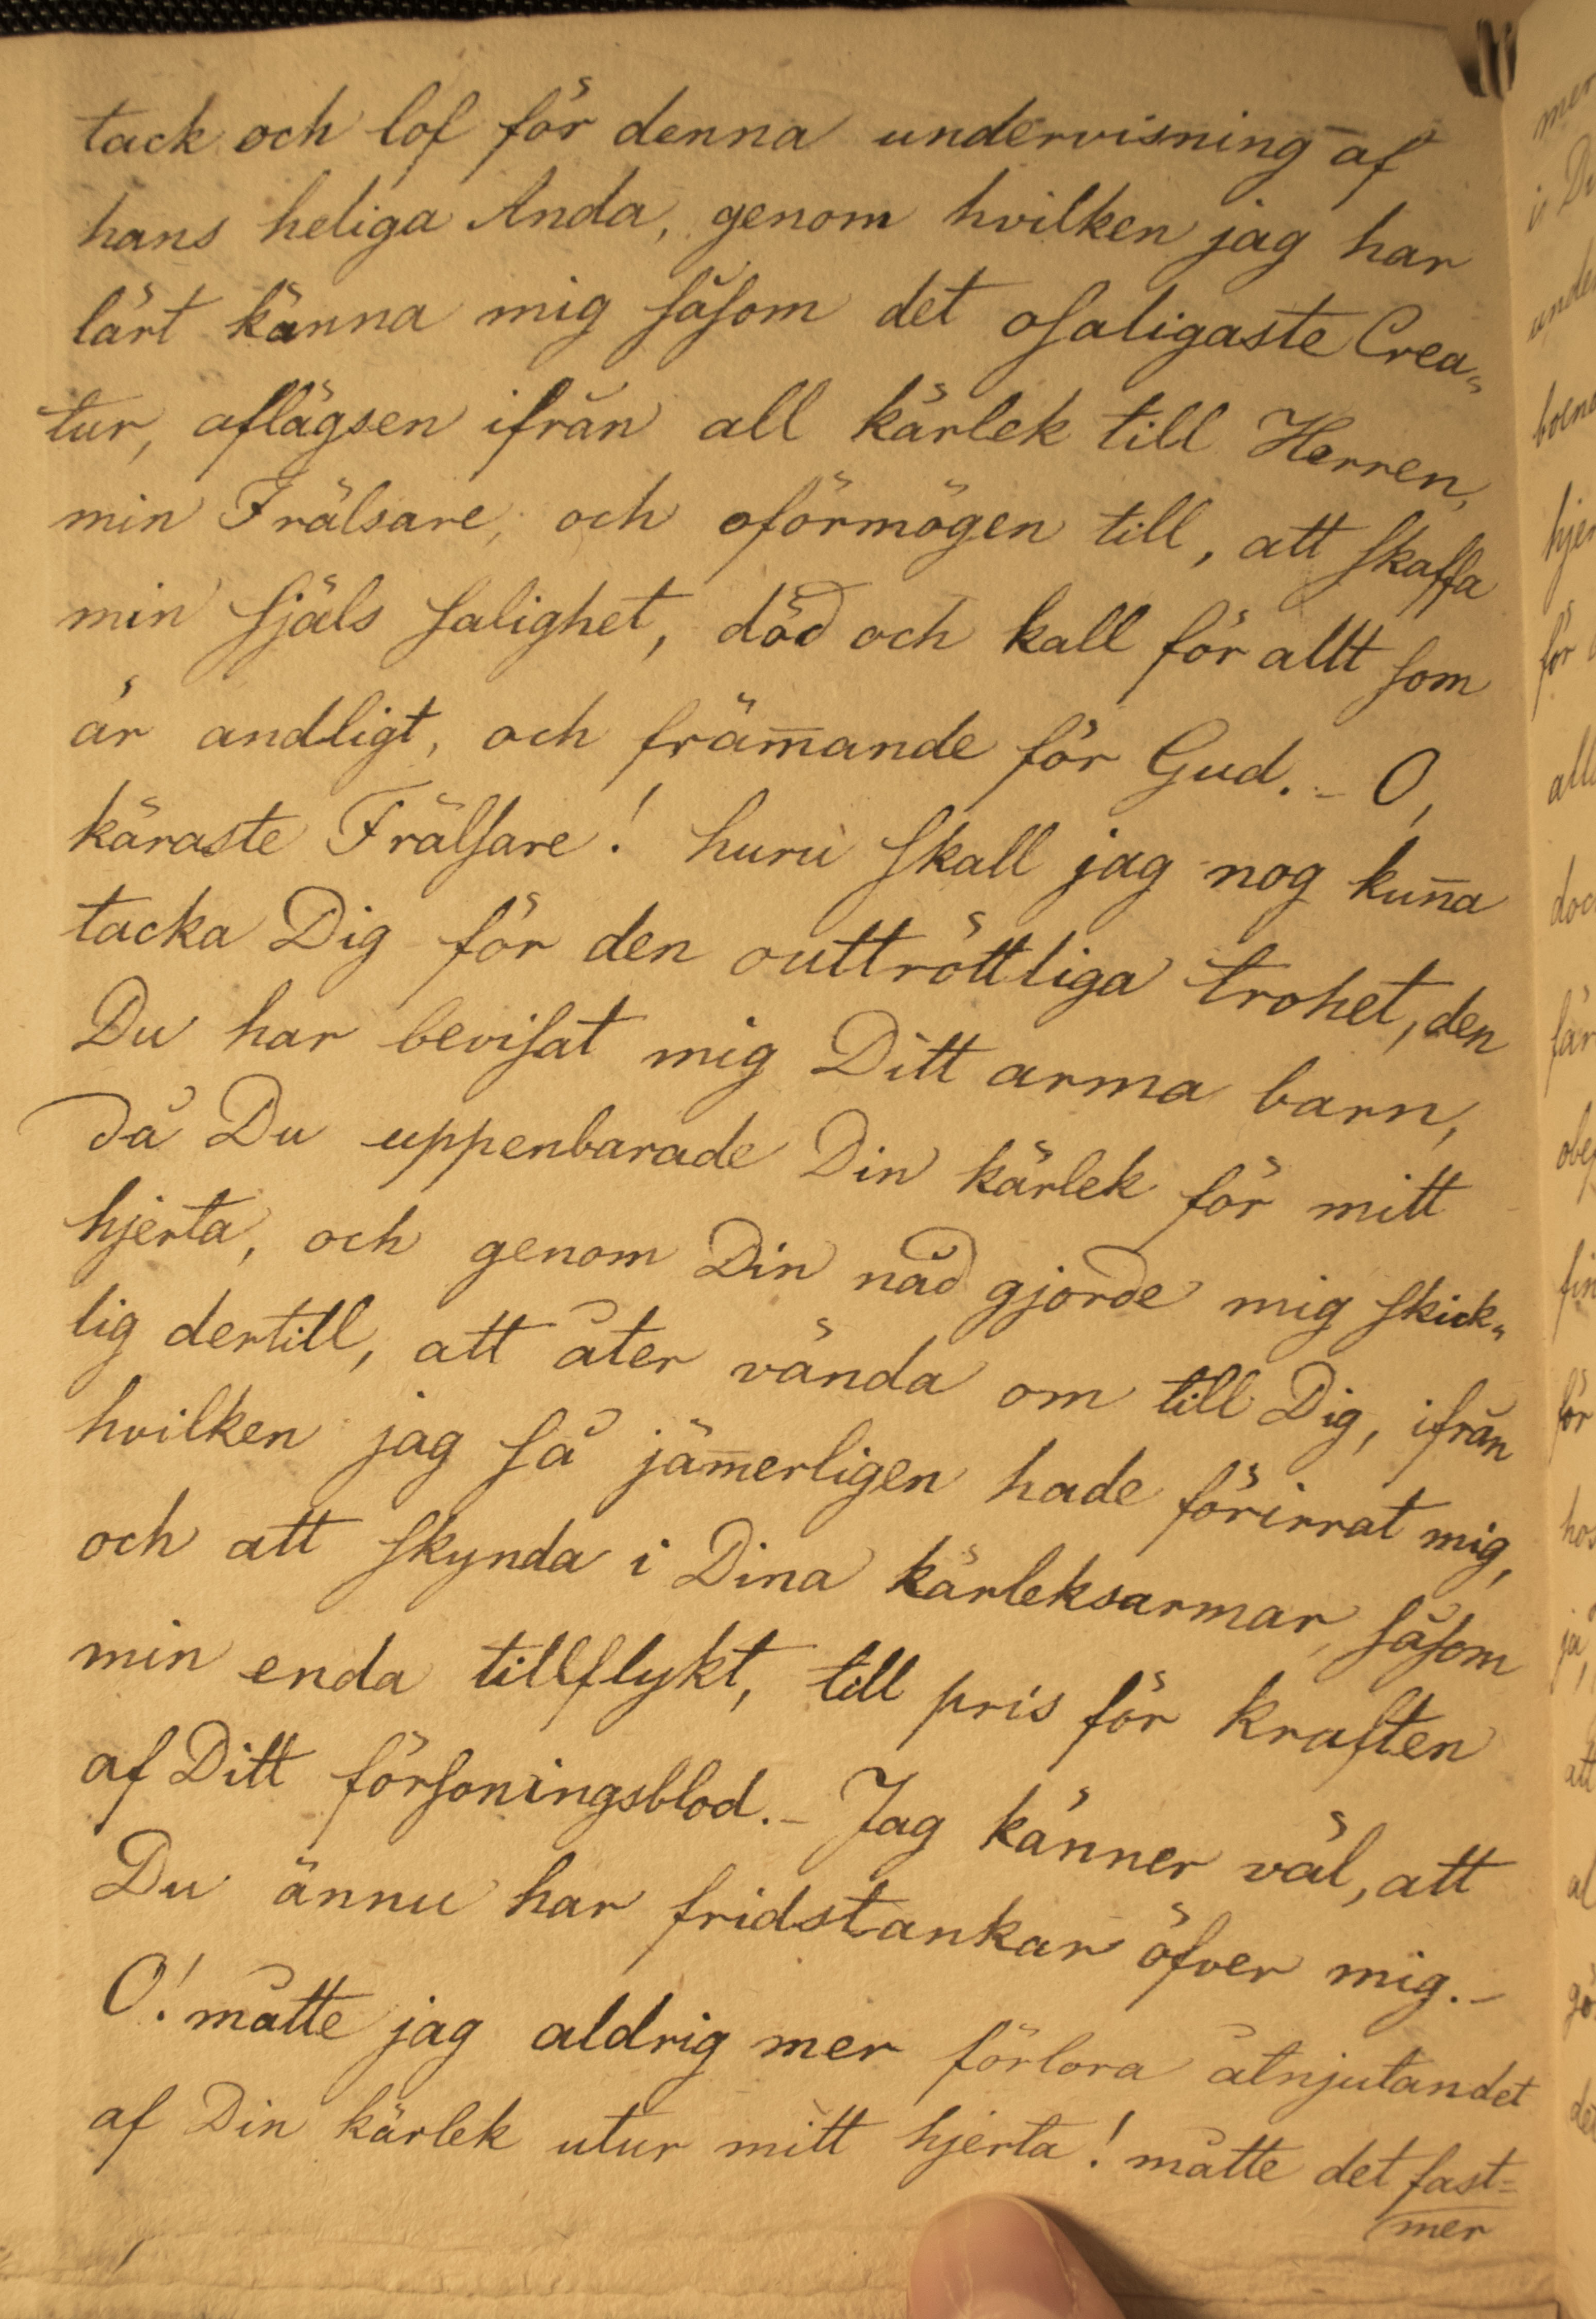 tack och lof för denna undervisning af
hans heliga Anda, genom hvilken jag har
lärt känna mig såsom det osaligaste Crea„
tur, aflägsen ifrån all kärlek till Herren,
min Frälsare, och oförmögen till, att skaffa
min själs salighet, död och kall för allt som
är andligt, och främ̄ande för Gud. – O,
käraste Frälsare! huru skall jag nog kun̄a
tacka Dig för den outtröttliga trohet, den
Du har bevisat mig Ditt arma barn,
då Du uppenbarade Din kärlek för mitt
hjerta, och genom Din nåd gjorde mig skick„
lig dertill, att åter vända om till Dig, ifrån
hvilken jag så jäm̄erligen hade förirrat mig,
och att skynda i Dina kärleksarmar, såsom
min enda tillflykt, till pris för kraften
af Ditt försoningsblod. – Jag känner väl, att
Du ännu har fridstankar öfver mig. –
O! måtte jag aldrig mer förlora åtnjutandet
af Din kärlek utur mitt hjerta! måtte det fast=
mer